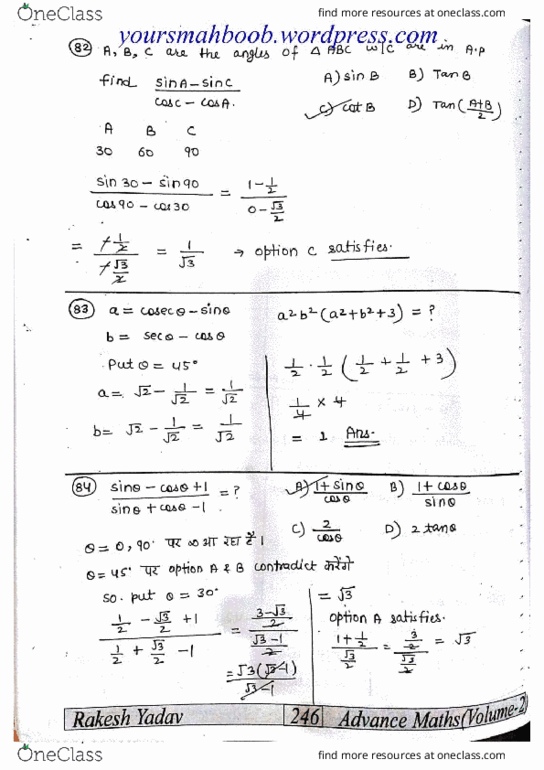 OneClass
find more resources at oneclass.com
yoursmahboob.wordpress.com
find more resources at oneclass.com
82) A, B, C are the angles of △ ABC w/c are in A.P
find (sinA - sinC)/(cosC - cosA.)
A) sin B B) Tan B
C) cot B D) Tan((A+B)/2)
A B C
30 60 90
(sin 30 - sin 90)/(cos 90 - cos 30) = (1 - 1/2)/(0 - √3/2)
= (-1/2)/(-√3/2) = 1/√3 → option C satisfies.
83) a = cosecθ - sinθ
b = secθ - cosθ
Put θ = 45°
a = √2 - 1/√2 = 1/√2
b = √2 - 1/√2 = 1/√2
a²b²(a²+b²+3) = ?
1/2 · 1/2 (1/2 + 1/2 + 3)
1/4 × 4
= 1 Ans.
84) (sinθ - cosθ + 1)/(sinθ + cosθ - 1) = ?
A) (1 + sinθ)/cosθ B) (1 + cosθ)/sinθ
C) 2/cosθ D) 2 tanθ
θ = 0, 90° पर ∞ आ रहा है।
θ = 45° पर option A & B contradict करेंगे
so. put θ = 30°
(1/2 - √3/2 + 1)/(1/2 + √3/2 - 1) = ((3-√3)/2)/((√3-1)/2)
= √3(√3-1)/(√3-1)
= √3
option A satisfies.
(1 + 1/2)/(√3/2) = (3/2)/(√3/2) = √3
Rakesh Yadav 246 Advance Maths(Volume-2)
OneClass
find more resources at oneclass.com
find more resources at oneclass.com